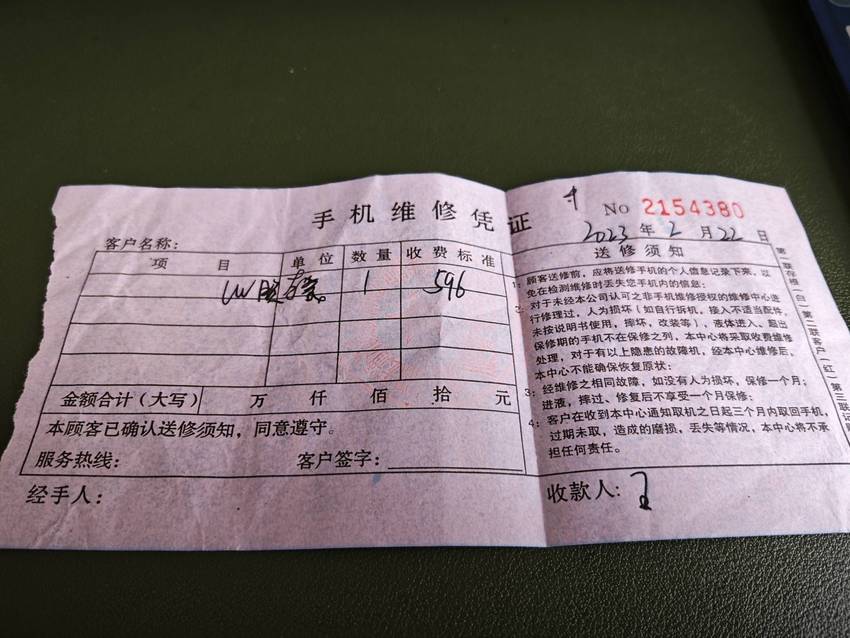 手机维修凭证
No 2154380
客户名称:
2023年2月22日
项目 单位 数量 收费标准
1 596
金额合计（大写） 万 仟 佰 拾 元
本顾客已确认送修须知，同意遵守。
服务热线: 客户签字:
经手人: 收款人:
送修须知
1: 顾客送修前，应将送修手机的个人信息记录下来，以
免在检测维修时丢失您手机内的信息:
2: 对于未经本公司认可之非手机维修授权的维修中心进
行修理过，人为损坏（如自行拆机，接入不适当配件，
未按说明书使用，摔坏，改装等），液体进入、超出
保修期的手机不在保修之列，本中心将采取收费维修
处理，对于有以上隐患的故障机，经本中心维修后，
本中心不能确保恢复原状:
3: 经维修之相同故障，如没有人为损坏，保修一个月;
进液，摔过、修复后不享受一个月保修:
4: 客户在收到本中心通知取机之日起三个月内取回手机，
过期未取，造成的磨损，丢失等情况，本中心将不承
担任何责任。
第一联存根（白）第二联客户（红）第三联记账